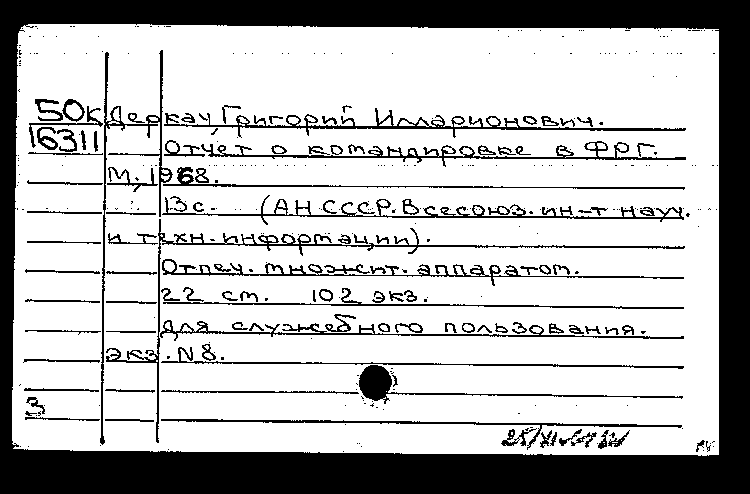 50к Деркач, Григорий Илларионович.
16311 Отчет о командировке в ФРГ.
М., 1968.
13с. (АН СССР. Всесоюз. ин-т науч.
и техн. информации).
Отпеч. множит. аппаратом.
22 см. 102 экз.
Для служебного пользования.
экз. N 8.
3